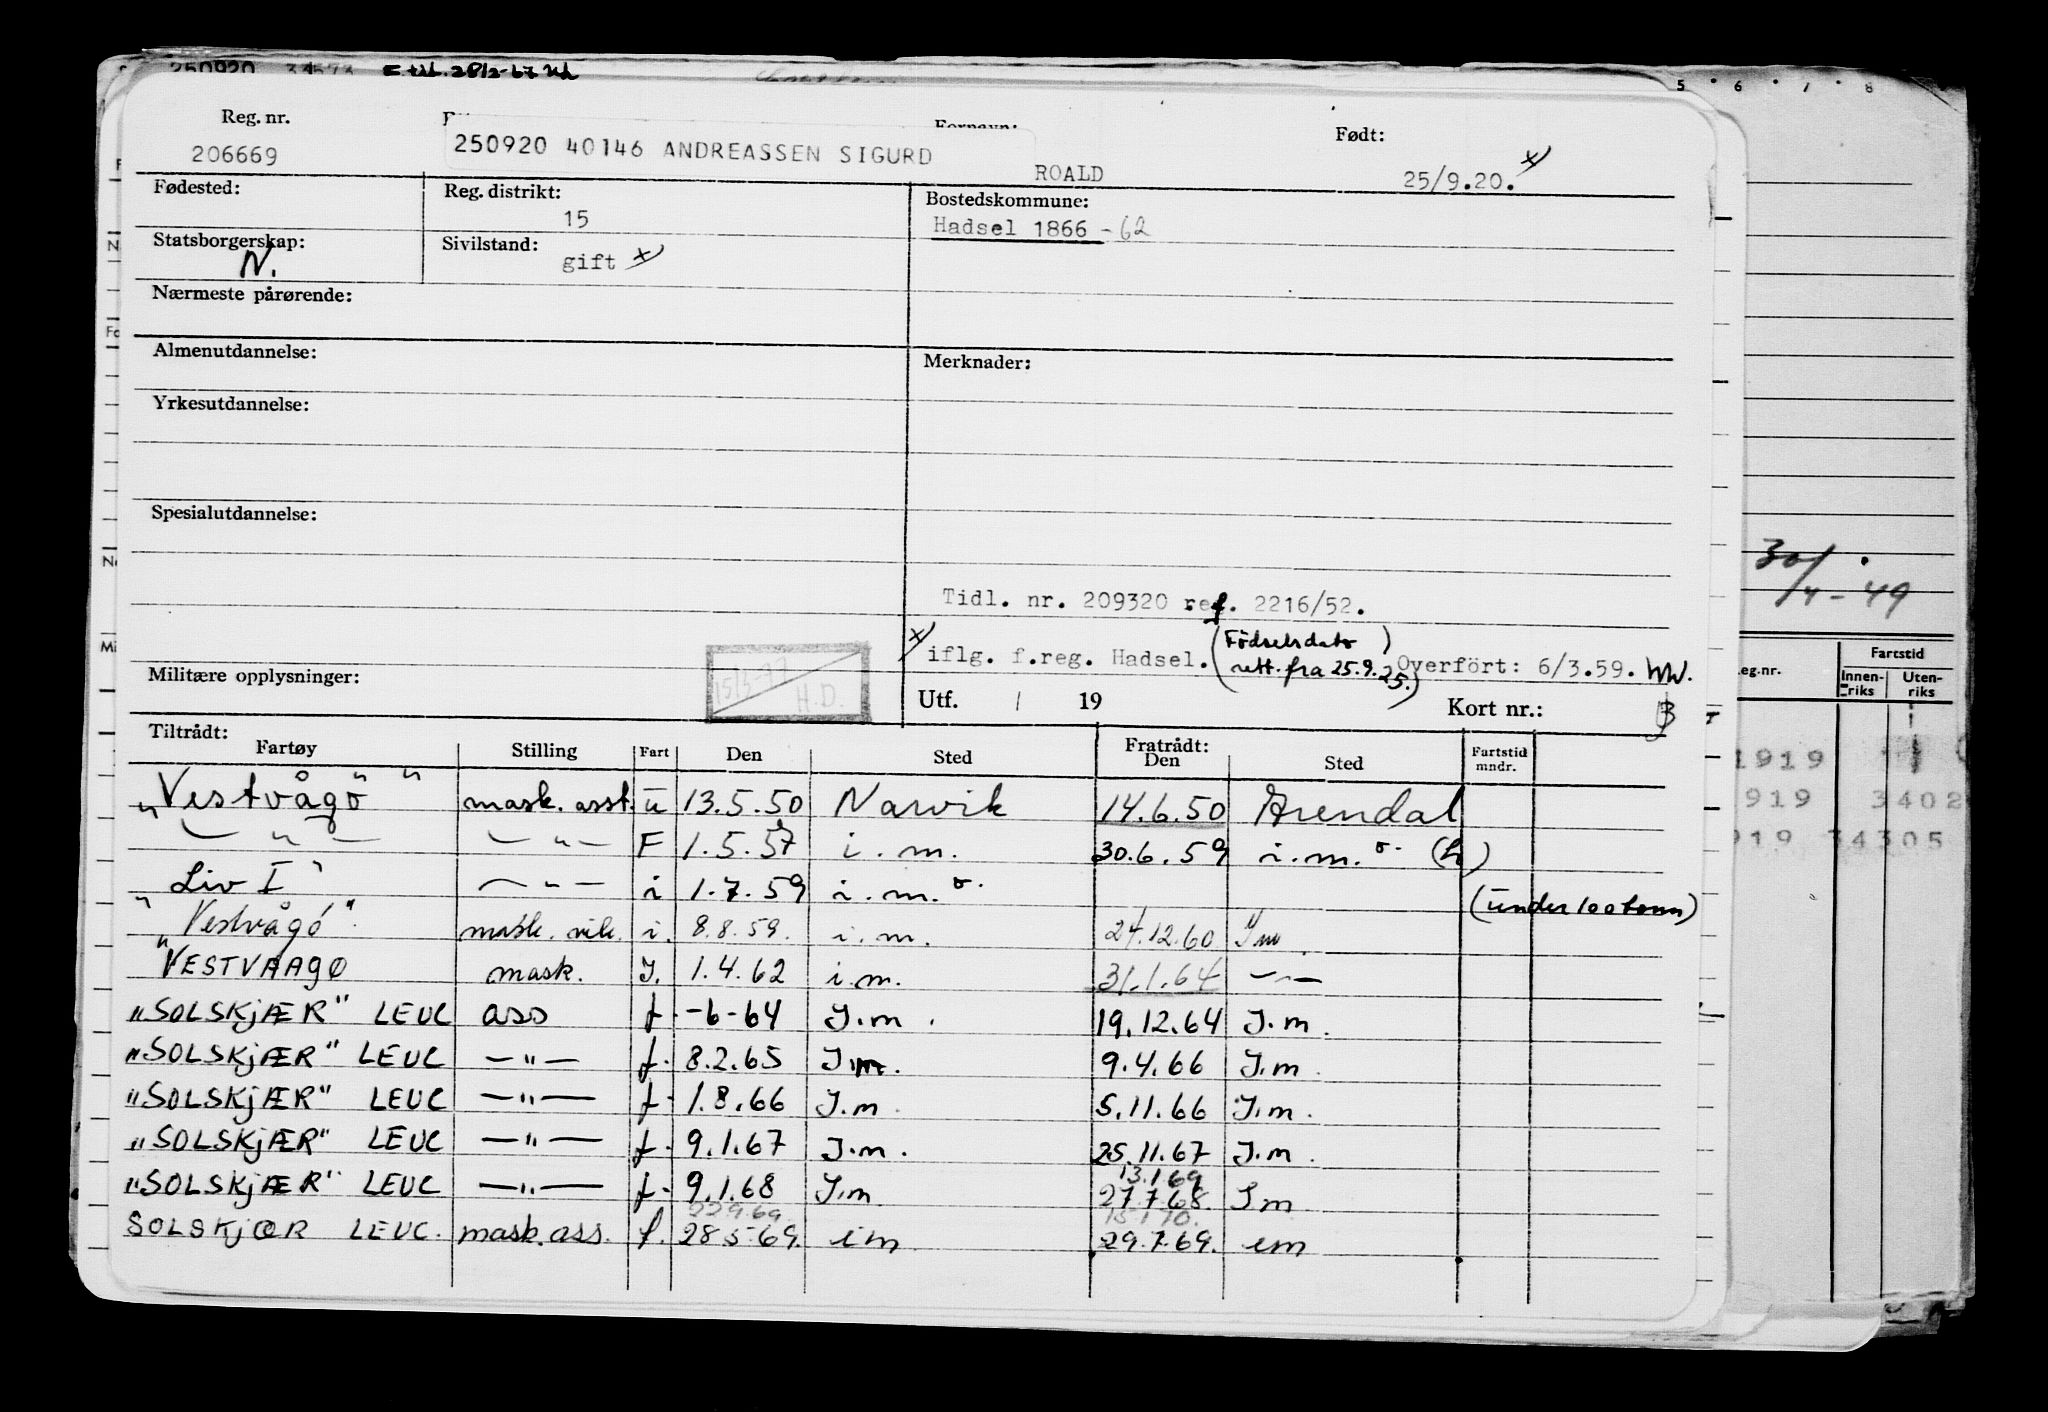 250920 34573
5 . 6 . 7 . 8
Reg. nr. Fornavn: Født:
206669 250920 40146 ANDREASSEN SIGURD ROALD 25/9.20. x)
Fødested: Reg. distrikt: 15 Bostedskommune:
Hadsel 1866 - 62
Statsborgerskap: N. Sivilstand: gift x)
Nærmeste pårørende:
Almenutdannelse: Merknader:
Yrkesutdannelse:
Spesialutdannelse:
30/4 - 49
Tidl. nr. 209320 ref. 2216/52.
x) iflg. f.reg. Hadsel. (Födselsdato rett. fra 25.9.25.) Overført: 6/3.59. WW.
Militære opplysninger: 15/3-77 H.D. Utf. / 19 Kort nr.: 3
eg.nr. Fartstid
Innen-riks Uten-riks
Tiltrådt: Fratrådt:
Fartøy Stilling Fart Den Sted Den Sted Fartstid mndr.
"Vestvågö" mask. asst. u 13.5.50 Narvik 14.6.50 Arendal
— " — — " — F 1.5.57 i.m. 30.6.59 i.m. (h)
Liv I — " — i 1.7.59 i.m. (under 100 tonn)
"Vestvågö" mask. vik. i. 8.8.59. i.m. 24.12.60 Im
"VESTVAAGØ mask. J. 1.4.62 i.m. 31.1.64 — " —
"SOLSKJÆR" LEUC ass f. -6-64 J.m. 19.12.64 J.m.
"SOLSKJÆR" LEUC — " — f. 8.2.65 J.m. 9.4.66 J.m.
"SOLSKJÆR" LEUC — " — f. 1.8.66 J.m. 5.11.66 J.m.
"SOLSKJÆR" LEUC — " — f. 9.1.67 J.m. 25.11.67 J.m.
13.1.69
"SOLSKJÆR" LEUC — " — f. 9.1.68 J.m 27.7.68. Jm
22.9.69. 15.1.70.
SOLSKJÆR LEUC. mask. ass. f. 28.5-69. im 29.7.69. im
1919
919 3402
919 34305